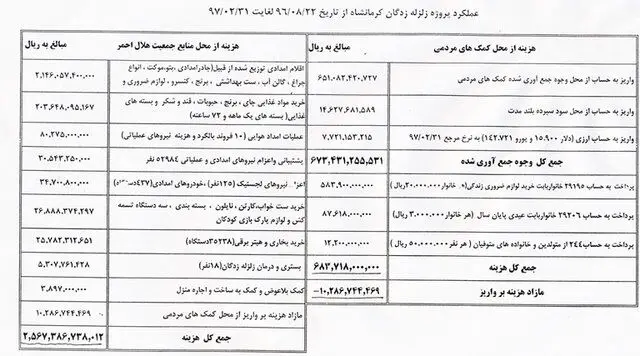 عملکرد پروژه زلزله زدگان کرمانشاه از تاریخ ۹۶/۰۸/۲۲ لغایت ۹۷/۰۲/۳۱
هزینه از محل کمک های مردمی
مبالغ به ریال
واریز به حساب از محل وجوه جمع آوری شده کمک های مردمی
۶۵۱,۰۸۲,۴۲۰,۷۲۷
واریز به حساب از محل سود سپرده بلند مدت
۱۴,۶۲۷,۶۸۱,۵۸۹
واریز به حساب ارزی (دلار ۱۵,۹۰۰ و یورو ۱۴۲,۷۲۱) به نرخ مرجع ۹۷/۰۲/۳۱
۷,۷۲۱,۱۵۳,۲۱۵
جمع کل وجوه جمع آوری شده
۶۷۳,۴۳۱,۲۵۵,۵۳۱
پرداخت به حساب ۲۹۱۹۵ خانواربابت خرید لوازم ضروری زندگی(هر خانوار۲۰,۰۰۰,۰۰۰ریال)
۵۸۳,۹۰۰,۰۰۰,۰۰۰
پرداخت به حساب ۲۹۲۰۶ خانواربابت عیدی پایان سال (هر خانوار۳,۰۰۰,۰۰۰ ریال)
۸۷,۶۱۸,۰۰۰,۰۰۰
پرداخت به حساب۲۴۴ از متولدین و خانواده های متوفیان ( هر نفر ۵۰,۰۰۰,۰۰۰ ریال )
۱۲,۲۰۰,۰۰۰,۰۰۰
جمع کل هزینه
۶۸۳,۷۱۸,۰۰۰,۰۰۰
مازاد هزینه بر واریز
-۱۰,۲۸۶,۷۴۴,۴۶۹
هزینه از محل منابع جمعیت هلال احمر
مبالغ به ریال
اقلام امدادی توزیع شده از قبیل(چادرامدادی ،پتو،موکت ، انواع
چراغ ، گالن آب ، ست بهداشتی ، برنج ، کنسرو ، لوازم ضروری و
۲,۱۴۶,۰۵۷,۴۰۰,۰۰۰
خرید مواد غذایی چای ، برنج ، حبوبات ، قند و شکر و بسته های
غذایی( بسته های یک ماهه و ۷۲ ساعته)
۲۰۳,۶۴۸,۰۹۵,۱۶۷
عملیات امداد هوایی (۱۰ فروند بالگرد و هزینه نیروهای عملیاتی)
۸۰,۲۷۵,۰۰۰,۰۰۰
پشتیبانی واعزام نیروهای امدادی و عملیاتی ۵۲۹۸۴ نفر
۳۰,۵۴۳,۲۵۰,۰۰۰
نیروهای لجستیک (۱۲۵نفر)، خودروهای امدادی(۴۳۷
۳۴,۷۰۰,۸۰۰,۰۰۰
خرید ست خواب،کارتن ، نایلون ، بسته بندی ، سه دستگاه تسمه
کش و لوازم پارک بازی کودکان
۲۶,۸۸۸,۳۷۴,۲۹۷
خرید بخاری و هیتر برقی(۳۵۲۳۸دستگاه)
۲۵,۷۸۲,۳۱۲,۶۵۱
بستری و درمان زلزله زدگان(۱۸نفر)
۵,۳۰۷,۷۶۱,۴۲۸
کمک بلاعوض و کمک به ساخت و اجاره منزل
۳,۸۹۷,۰۰۰,۰۰۰
مازاد هزینه بر واریز از محل کمک های مردمی
۱۰,۲۸۶,۷۴۴,۴۶۹
جمع کل هزینه
۲,۵۶۷,۳۸۶,۷۳۸,۰۱۲